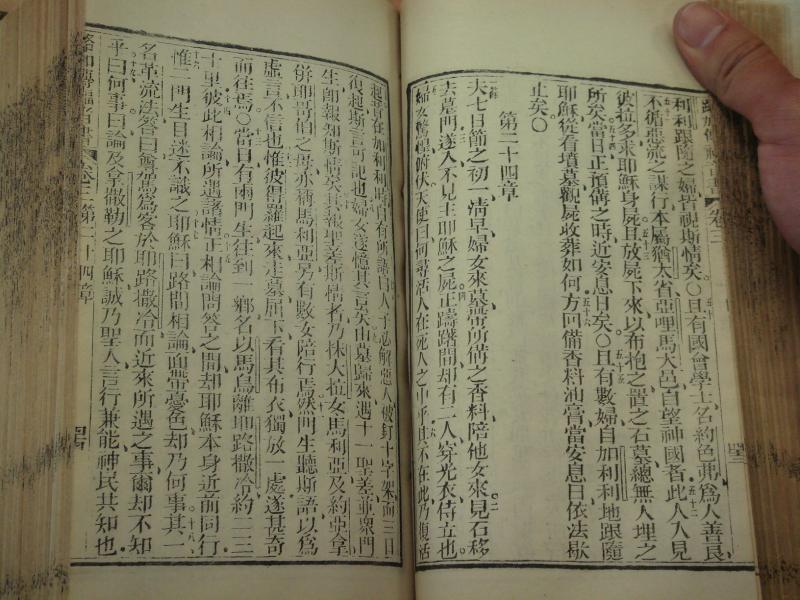 利利跟隨之婦皆視斯情矣〇且有國會學士名約色弗為人善良
不循惡黨之謀行本屬猶太省亞哩馬大邑自望神國者此人入見
彼拉多求耶穌身屍且放屍下來以布抱之置之石墓總無人埋之
所矣當日正預備之時近安息日矣〇且有數婦自加利利地跟隨
耶穌從看墳墓觀屍收葬如何方回備香料油膏當安息日依法歇
止矣〇
第二十四章
夫七日節之初一清早婦女來墓帶所備之香料陪他女來見石移
去墓門遂入不見主耶穌之屍正躊躇間却有二人穿光衣侍立也
婦女驚惶俯伏天使曰何尋活人在死人之中乎其不在此乃復活
起昔在加利利時自有所諾曰人子必解惡人被釘十字架而三日
復起斯言可記也婦女遂憶其言矣由墓歸來遇十一聖差並眾門
生卽報知斯情矣其報聖差斯情者乃抹大拉女馬利亞及約亞拿
併耶哥伯之母亦稱馬利亞另有數女陪行焉然門生聽斯語以為
虛言不信也惟彼得羅起來往墓屈下看其布衣獨放一處遂甚奇
而往焉〇當日有兩門生往到一鄉名以馬烏離耶路撒冷約二三
十里彼此相論所遇諸情正相論問答之間却耶穌本身近前同行
惟二門生目迷不識之耶穌曰路間相論面帶憂色却乃何事其一
名革流法答曰尊駕為客於耶路撒冷而近來所遇之事爾却不知
乎曰何事曰論及拿撒勒之耶穌誠乃聖人言行兼能神民共知也